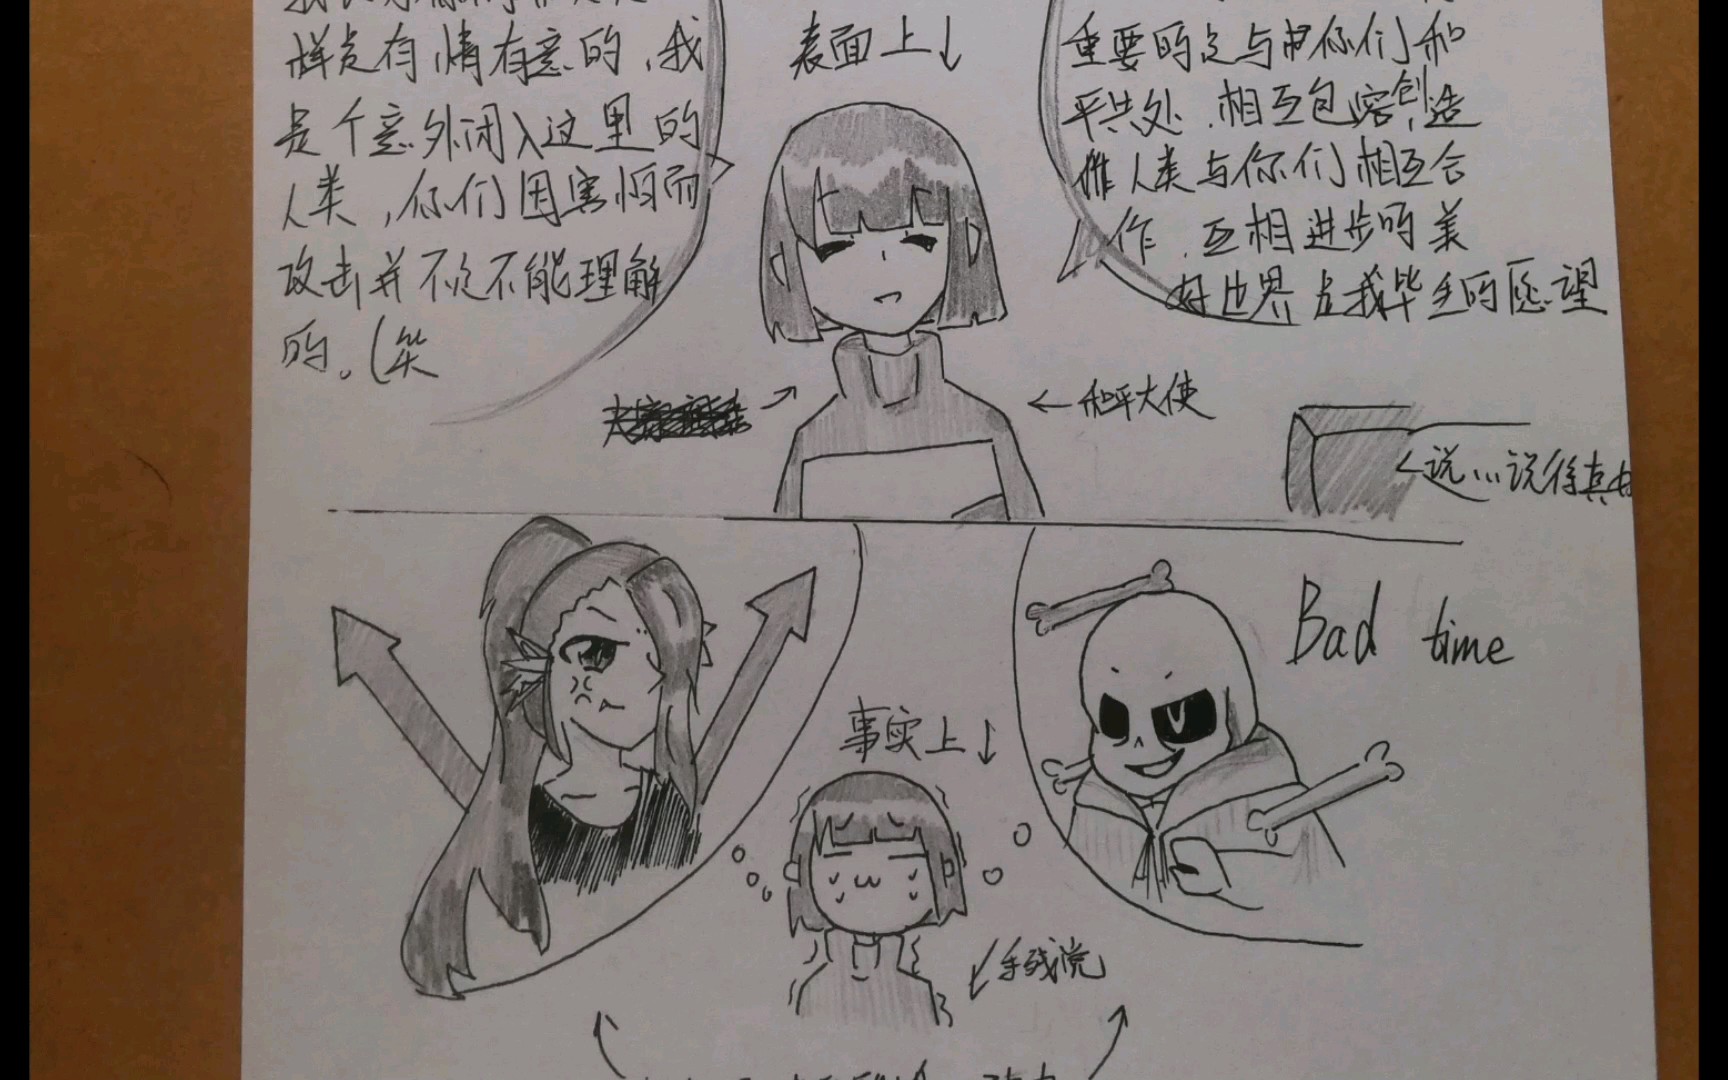 样是有情有意的，我
是个意外闭入这里的
人类，你们因害怕而
攻击并不是不能理解
的。(笑
表面上↓
重要的是与你们和
平共处，相互包容，创造
人类与你们相互合
作，互相进步的美
好世界是我毕生的愿望
←和平大使
←说…说得真
Bad time
事实上↓
手残党